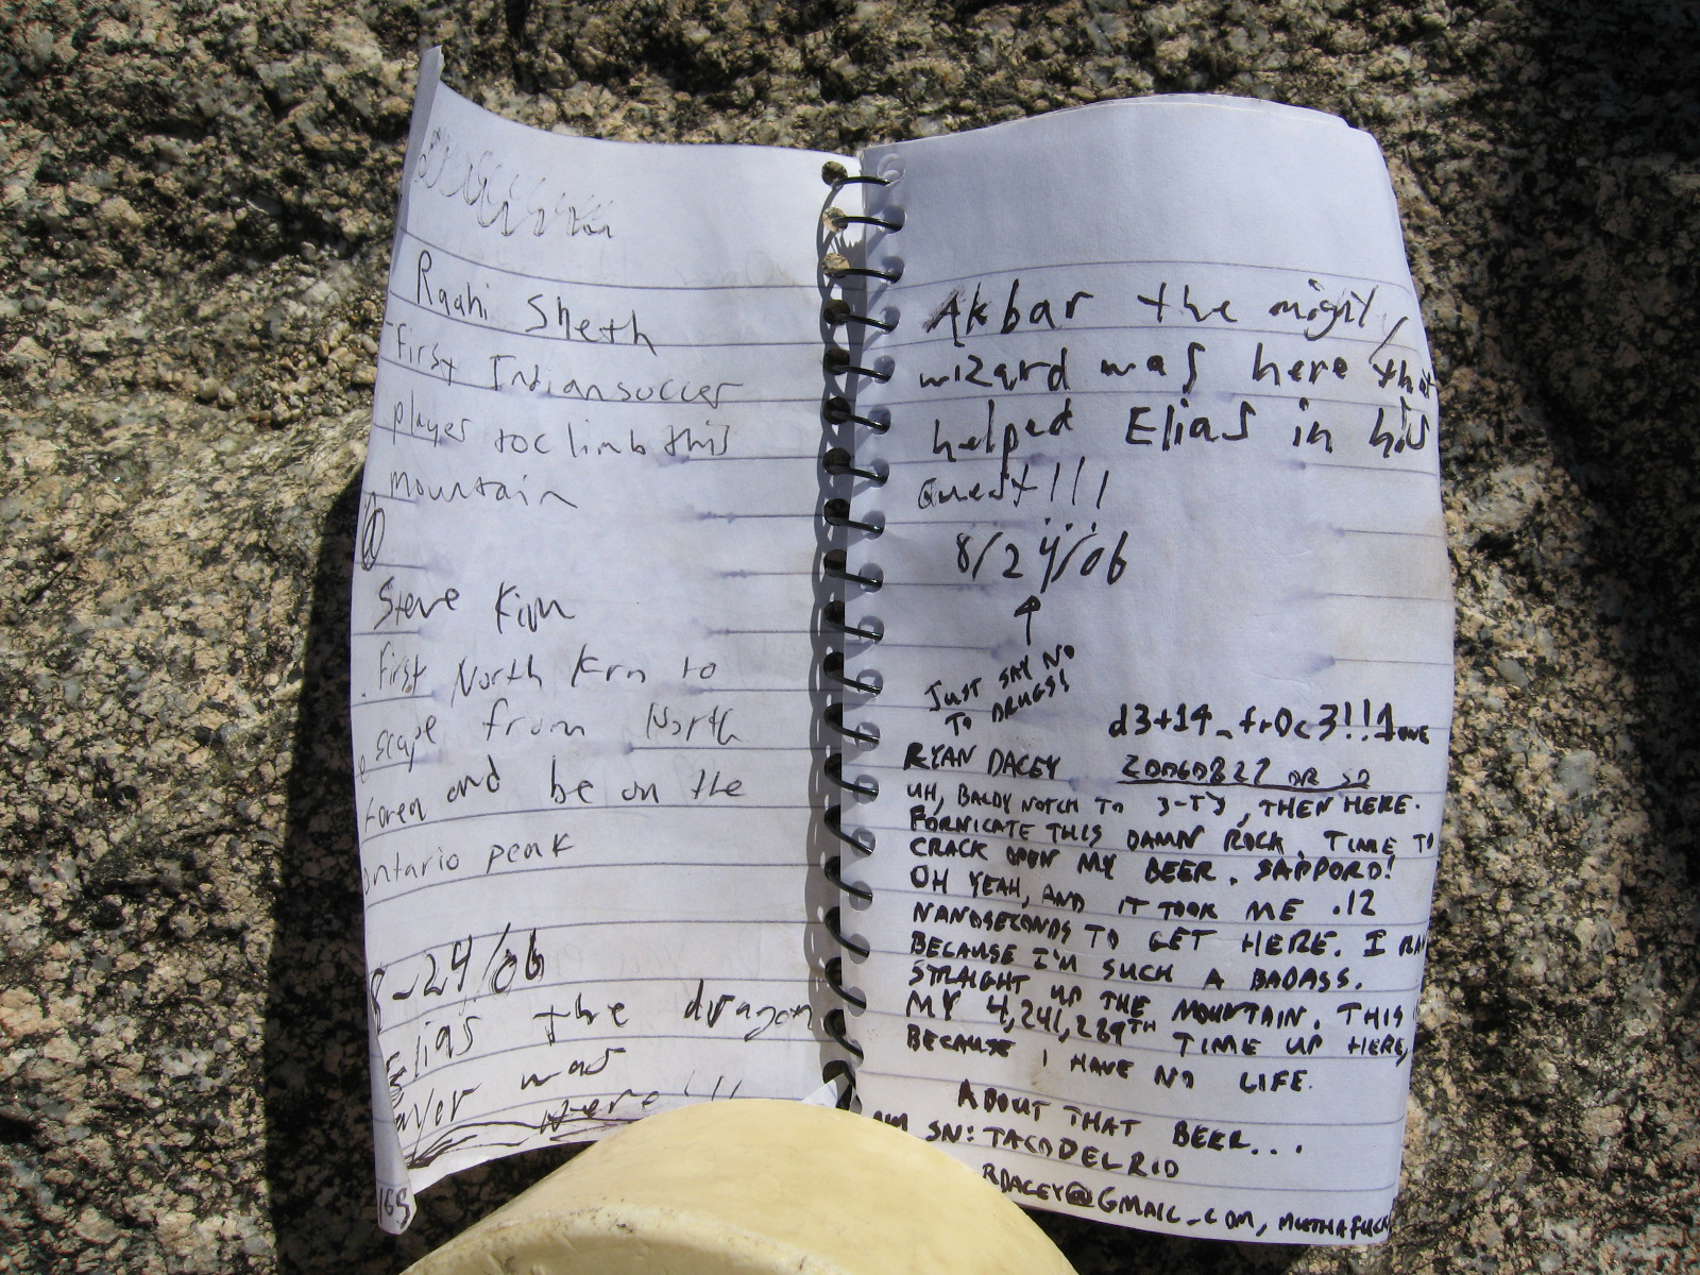 Raahi Sheth
first Indian soccer
player to climb this
mountain
Steve Kim
first North Krn to
escape from North
Korea and be on the
ontario peak
8-24/06
Elias the dragon
was
here!!!
Akbar the mighty
wizard was here that
helped Elias in his
quest!!!
8/24/06
JUST SAY NO
TO DRUGS!
d3+14_fr0c3!!1ONE
RYAN DACEY 20060827 OR SO
UH, BALDY NOTCH TO 3-T'S, THEN HERE.
FORNICATE THIS DAMN ROCK. TIME TO
CRACK OPEN MY BEER. SAPPORO!
OH YEAH, AND IT TOOK ME .12
NANOSECONDS TO GET HERE. I RAN
BECAUSE I'M SUCH A BADASS.
STRAIGHT UP THE MOUNTAIN. THIS
MY 4,241,289TH TIME UP HERE,
BECAUSE I HAVE NO LIFE.
ABOUT THAT BEER...
SN: TACODELRIO
RDACEY@GMAIL.COM, MUTHAFUCK